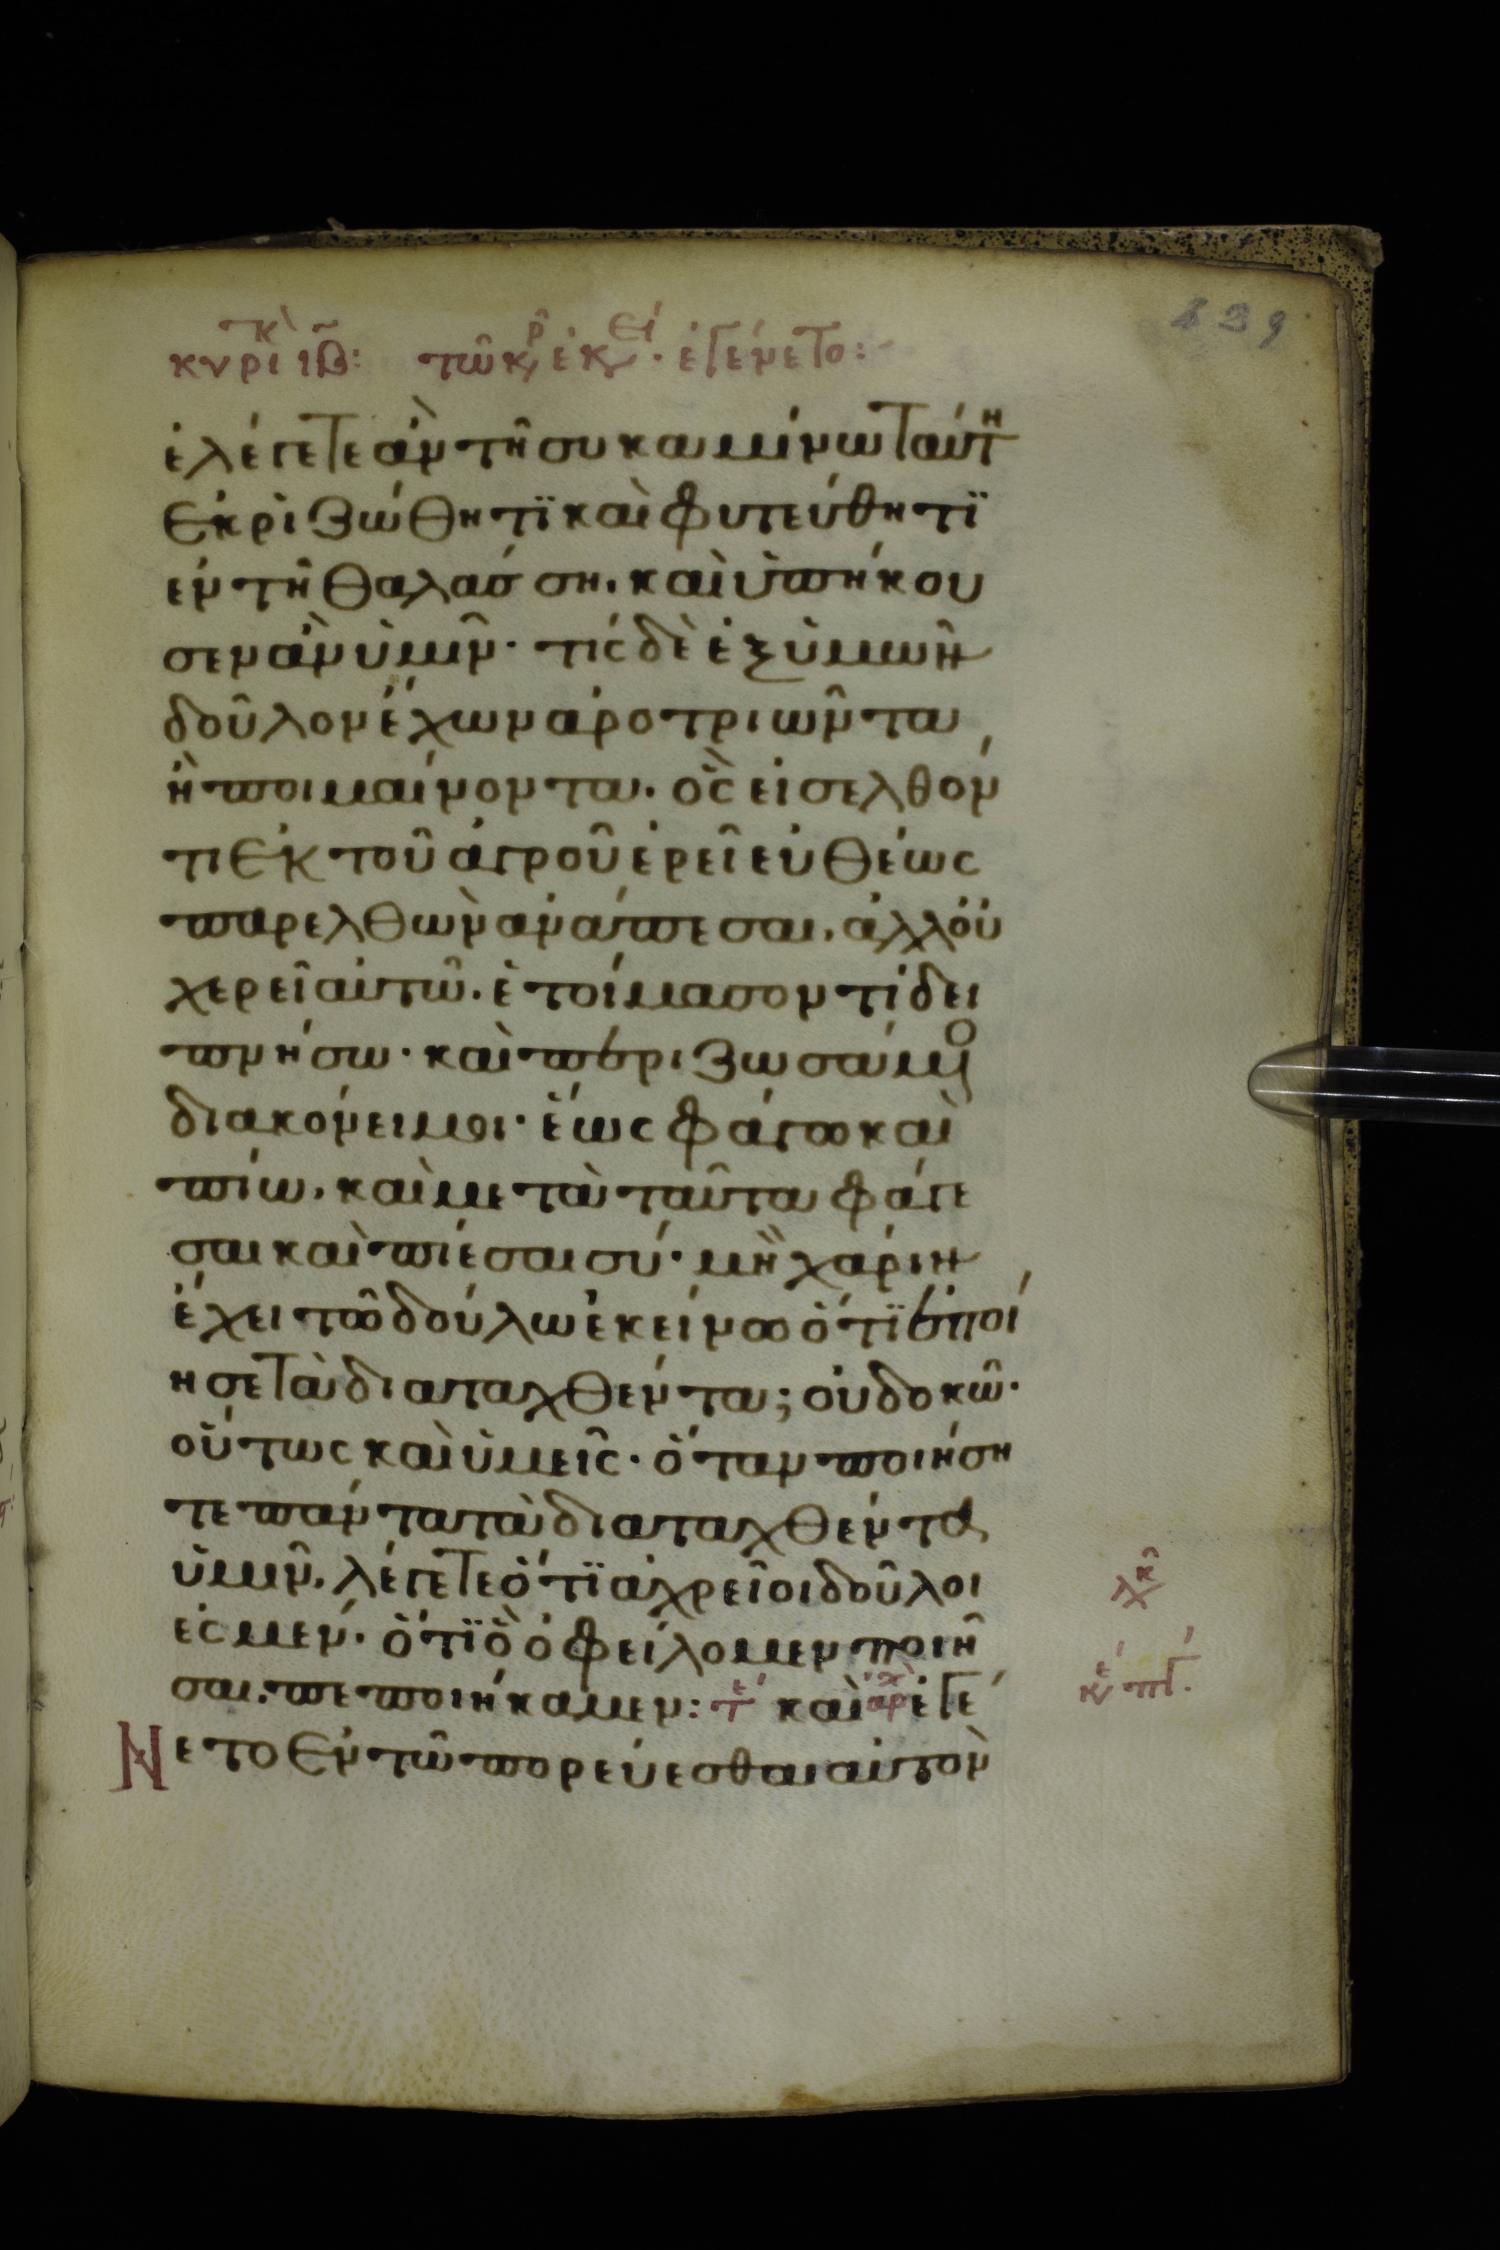 κυριακῆ ιβ: τῶ κρ ἐκει. ἐγένετο:
ἐλέγετε ἂν τῆ συκαμίνω ταύτη
ἐκριζώθητϊ καὶ φυτεύθητϊ
ἐν τῆ θαλάσση. καὶ ὑπήκου
σεν ἂν ὑμῖν. τίς δὲ ἐξ ὑμῶν
δοῦλον ἔχων ἀροτριῶντα
ἢ ποιμαίνοντα. ὃς εἰσελθόν
τι ἐκ τοῦ ἀγροῦ ἐρεῖ εὐθέως
παρελθὼν ἀνάπεσαι. ἀλλ' οὐ
χ ἐρεῖ αὐτῶ. ἑτοίμασον τί δει
πνήσω. καὶ περιζωσάμενος
διακόνει μοι. ἕως φάγω καὶ
πίω. καὶ μετὰ ταῦτα φάγε
σαι καὶ πίεσαι σύ. μὴ χάριν
ἔχει τῶ δούλω ἐκείνω ὅτϊ ἐποί
ησε τὰ διαταχθέντα; οὐ δοκῶ.
οὕτως καὶ ὑμεῖς. ὅταν ποιήση
τε πάντα τὰ διαταχθέντα
ὑμῖν. λέγετε ὅτϊ ἀχρεῖοι δοῦλοί
ἐσμεν. ὅτϊ ὃ ὀφείλομεν ποιῆ
σαι. πεποιήκαμεν: τε καὶ αρχ ἐγέ
Νετο ἐν τῶ πορεύεσθαι αὐτὸν